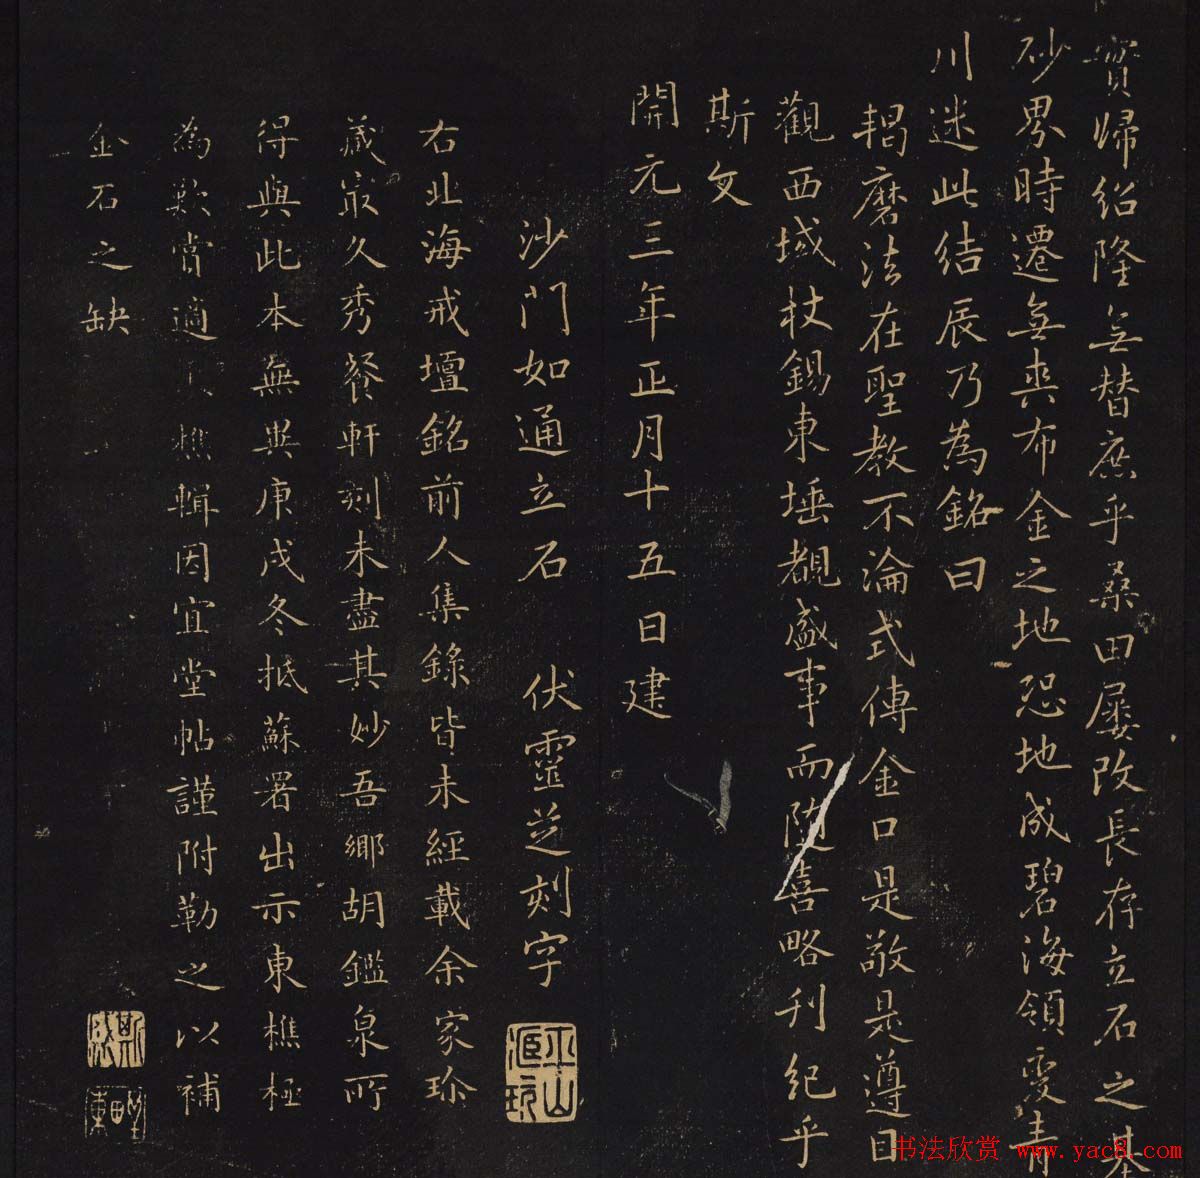 賓歸紹隆無替庶乎桑田屢改長存立石之基
砂界時遷無爽布金之地恐地成碧海領變青
川迷此結辰乃為銘曰
揭磨法在聖教不淪式傳金口是敬是遵因
觀西域杖錫東垂覩盛事而隨喜略刊紀乎
斯文
開元三年正月十五日建
沙門如通立石 伏靈芝刻字
右北海戒壇銘前人集錄皆未經載余家珍
藏最久秀餐軒刻未盡其妙吾鄉胡鑑泉所
得與此本無異庚戌冬抵蘇署出示東樵極
為歎賞適 樵輯因宜堂帖謹附勒之以補
金石之缺
书法欣赏 www.yac8.com